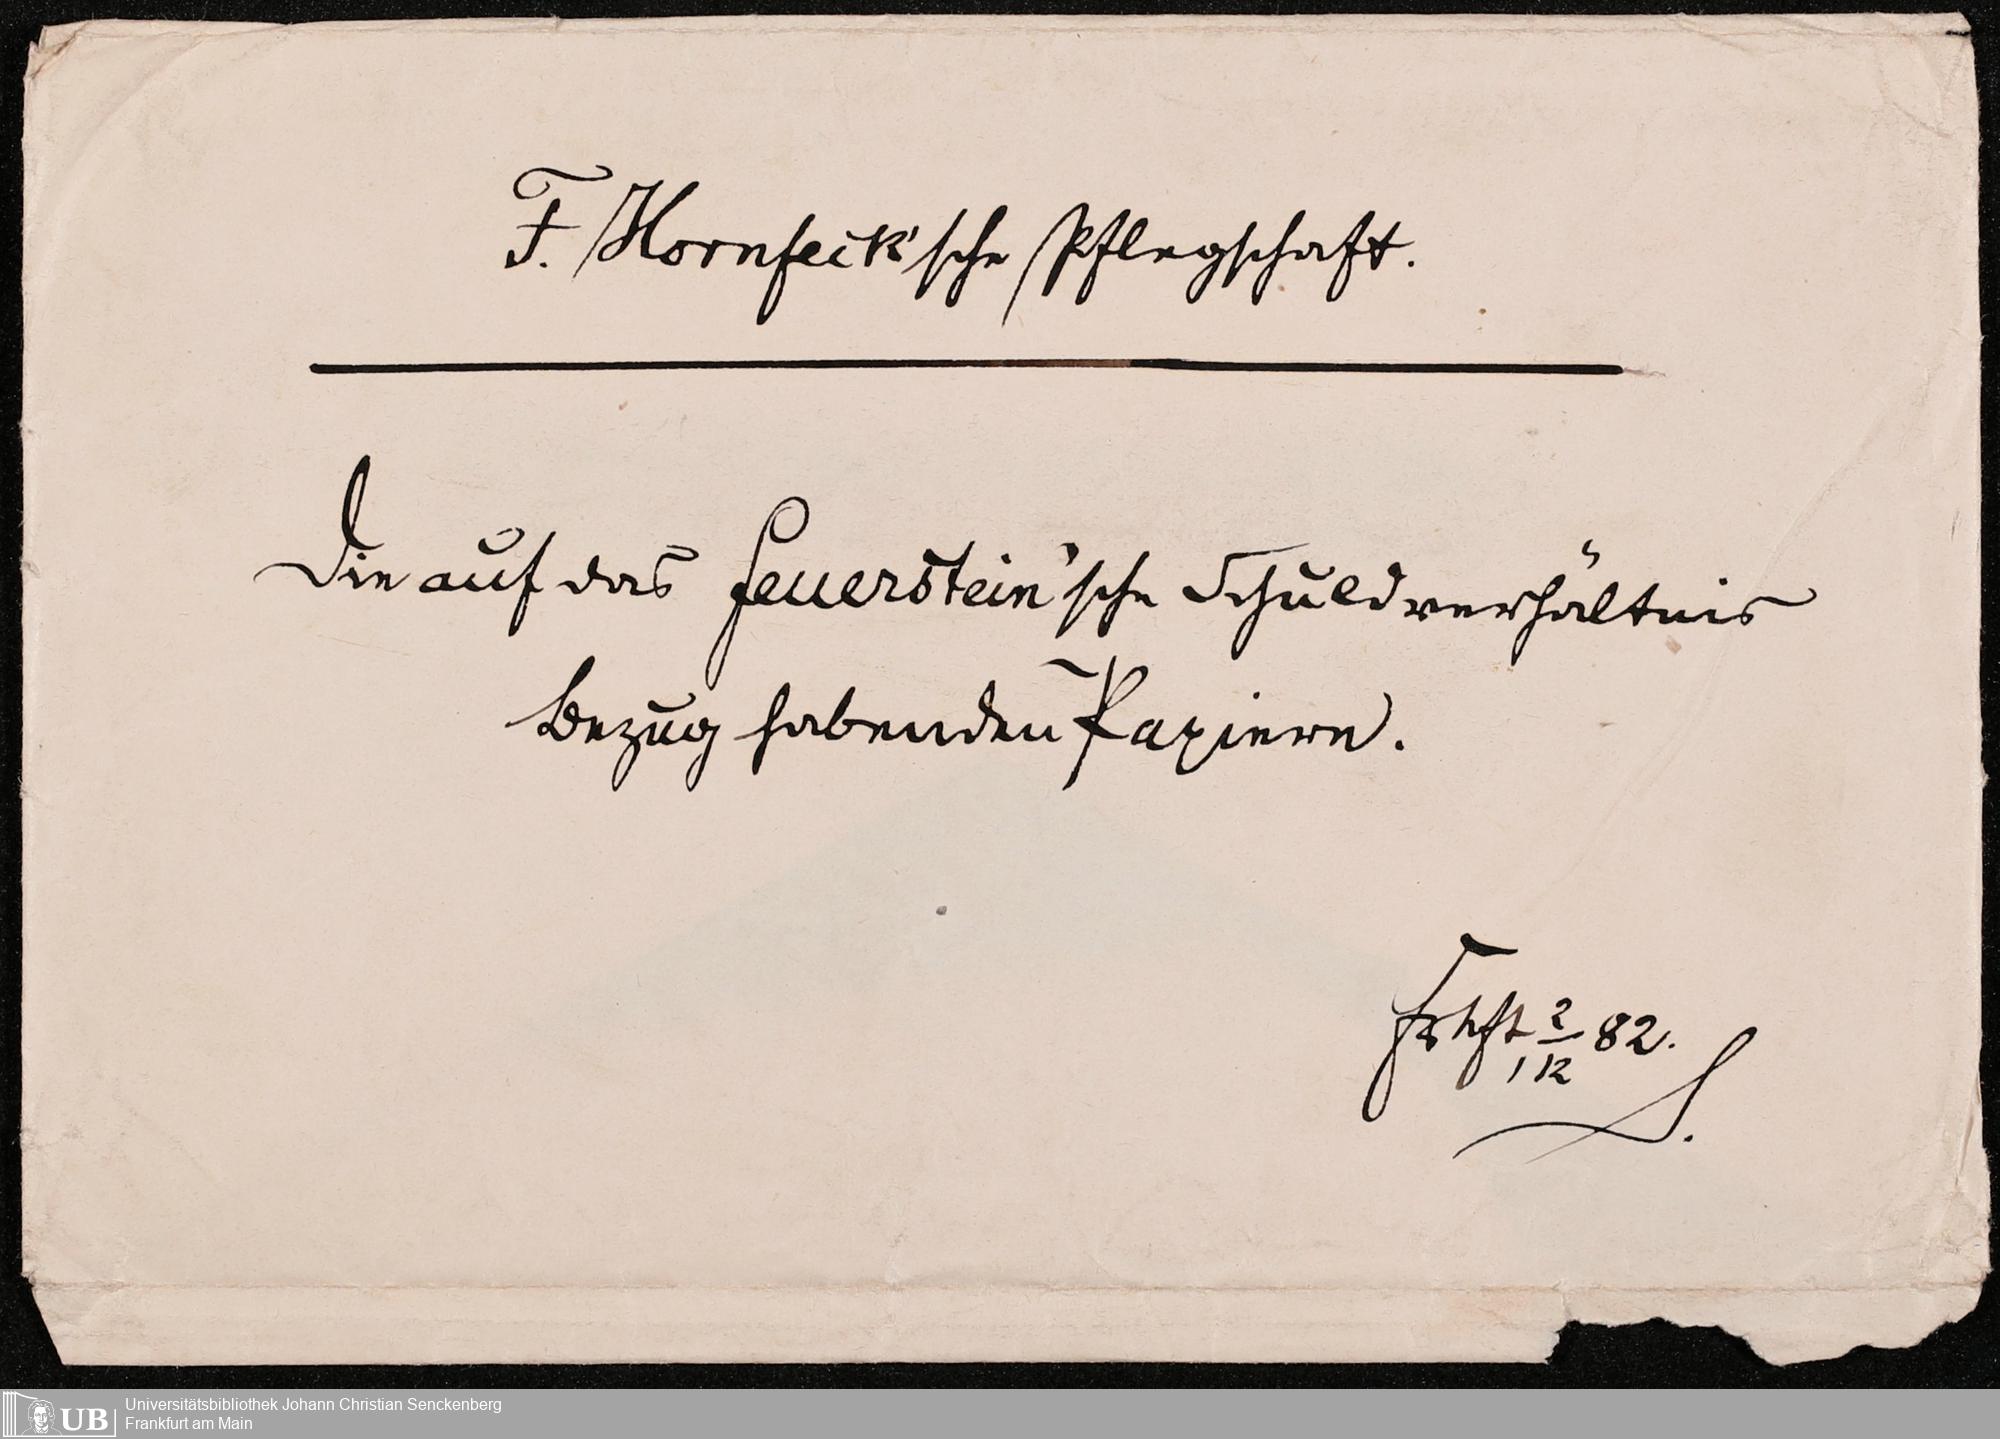 F. Hornfeck'sche Pflegschaft.
Die auf das Feuerstein'sche Schuldverhältnis
Bezug habenden Papiere.
Frkft 2/12 82.
UB Universitätsbibliothek Johann Christian Senckenberg
Frankfurt am Main